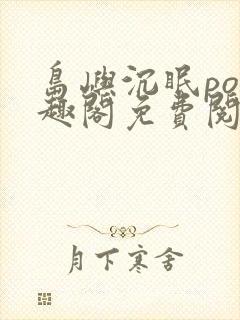 島嶼沉眠po
趣閣免費閱
月下寒舍